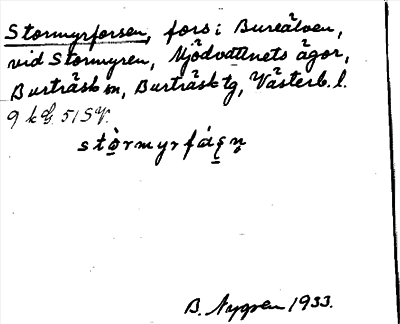 Stormyrforsen, fors i Bureälven,
vid Stormyren, Mjödvattnets ägor,
Burträsk sn, Burträsk tg, Västerb. l.
9 k G. 51 SV.
stòrmyrfáʂn̥
B. Nygren 1933.